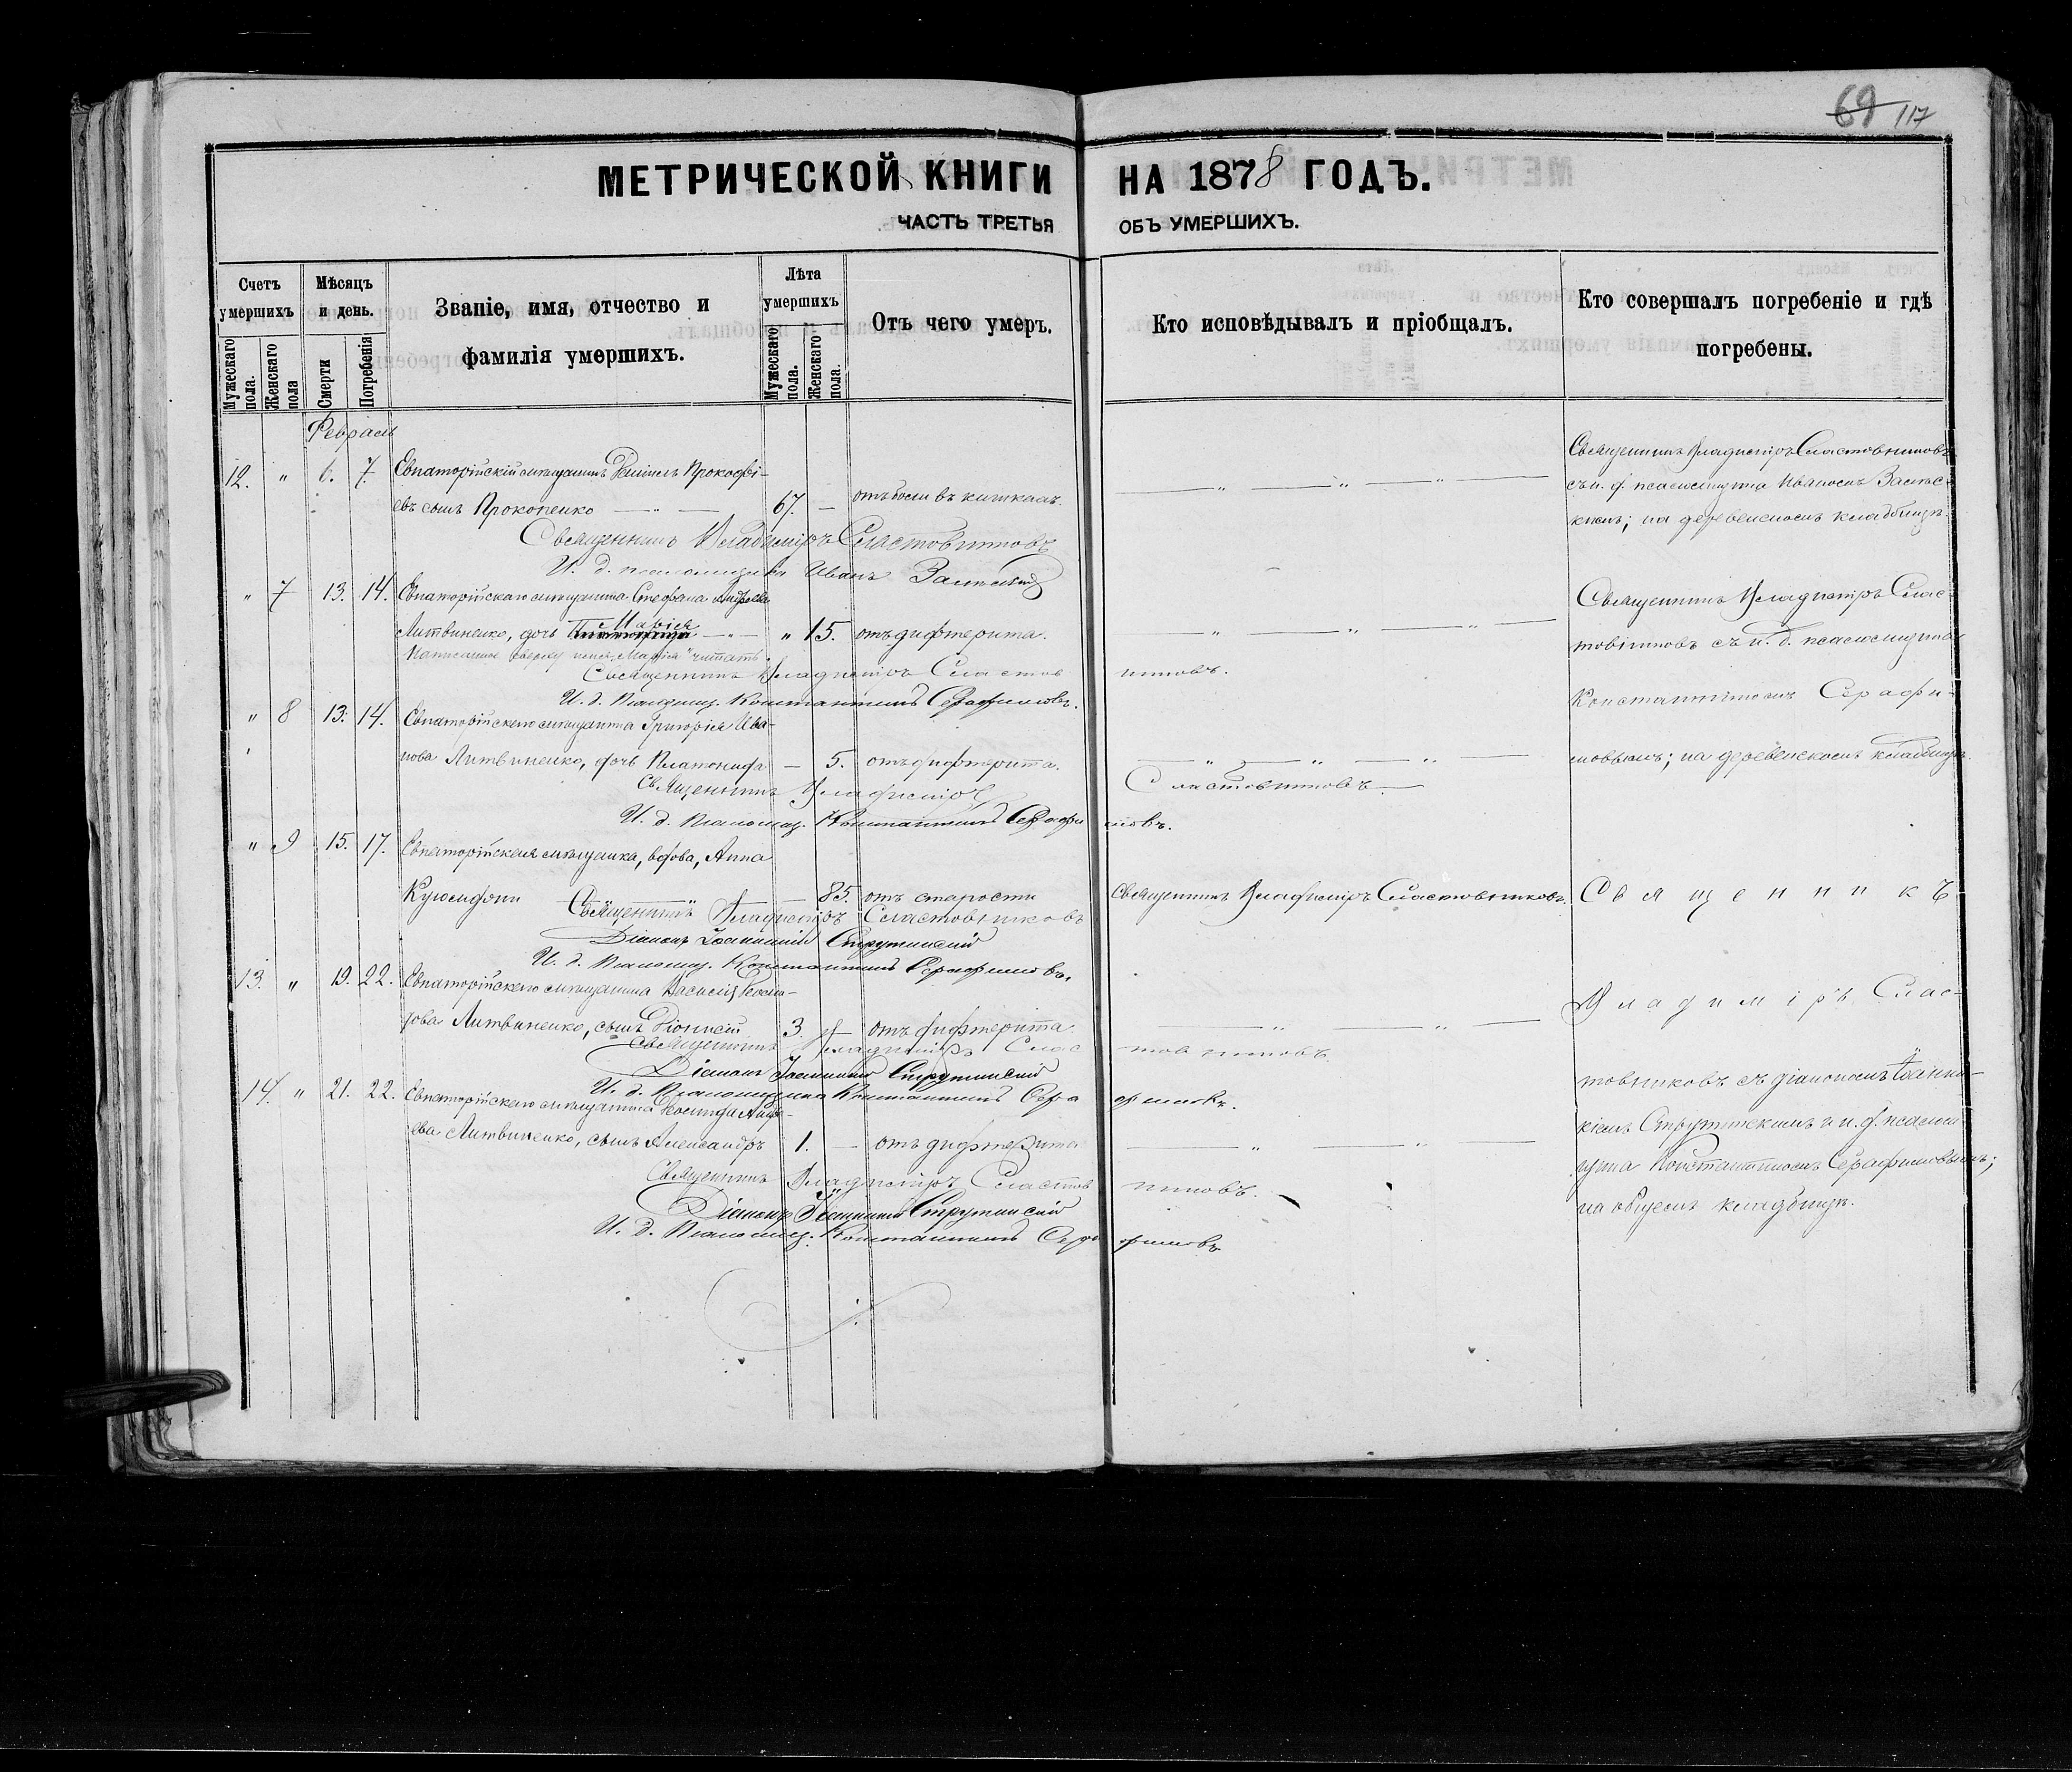 69 117
МЕТРИЧЕСКОЙ КНИГИ НА 1878 ГОДЪ.
ЧАСТЬ ТРЕТЬЯ ОБЪ УМЕРШИХЪ.
Счетъ умершихъ
Мужескаго пола.
Женскаго пола
Мѣсяцъ и день.
Смерти
Погребенія
Званіе, имя, отчество и
фамилія умершихъ.
Лѣта умершихъ
Мужескаго пола.
Женскаго пола.
Отъ чего умеръ.
Кто исповѣдывалъ и пріобщалъ.
Кто совершалъ погребеніе и гдѣ
погребены.
Февраль
12. " 6. 7. Евпаторійскій мѣщанинъ Прокофі-
евъ сынъ Прокопенко — " — 67. — отъ боли въ кишкахъ.
Священникъ Владиміръ Сластовниковъ
И. д. псаломщика Иванъ
Священникъ Владиміръ Сластовниковъ
съ и. д. псаломщика Иваномъ
на деревенскомъ кладбищѣ.
" 7 13. 14. Евпаторійскаго мѣщанина Стефана Андреева
Литвиненко, дочь Марія — " — " 15. отъ дифтерита.
Написанное сверху имя „Марія" читать.
Священникъ Владиміръ Сластовниковъ.
И. д. псаломщ. Константинъ Серафимовъ.
Священникъ Владиміръ Слас-
товниковъ съ и. д. псаломщика
Константиномъ Серафи-
мовымъ; на деревенскомъ кладбищѣ.
" 8 13. 14. Евпаторійскаго мѣщанина Григорія Ива-
нова Литвиненко, дочь Платонида — 5. отъ дифтерита.
Священникъ Владиміръ Сластовниковъ.
И. д. псаломщ. Константинъ Серафимовъ.
" 9 15. 17. Евпаторійская мѣщанка, вдова, Анна
— 85. отъ старости Священникъ Владиміръ Сластовниковъ.
Священникъ Владиміръ Сластовниковъ
Діаконъ Іоанникій Струтинскій
И. д. псаломщ. Константинъ Серафимовъ.
Священникъ
Владиміръ Слас-
товниковъ съ діакономъ Іоанни-
кіемъ Струтинскимъ и и. д. псалом-
щика Константиномъ Серафимовымъ;
на общемъ кладбищѣ.
13. " 19. 22. Евпаторійскаго мѣщанина Василія
Литвиненко, сынъ Діонисій 3. — отъ дифтерита
Священникъ Владиміръ Сластовниковъ.
Діаконъ Іоанникій Струтинскій
И. д. псаломщика Константинъ Серафимовъ.
14. " 21. 22. Евпаторійскаго мѣщанина
Литвиненко, сынъ Александръ 1. — отъ дифтерита
Священникъ Владиміръ Сластовниковъ.
Діаконъ Іоанникій Струтинскій
И. д. псаломщ. Константинъ Серафимовъ